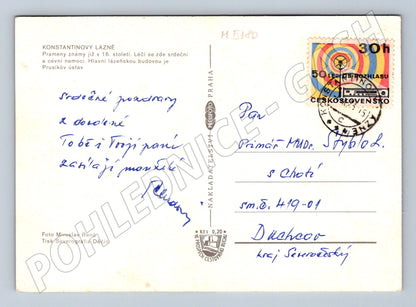 KONSTANTINOVY LÁZNĚ
Prameny známy již v 16. století. Léčí se zde srdeční
a cévní nemoci. Hlavní lázeňskou budovou je
Prusíkův ústav
30h
50 LET ČS. ROZHLASU
ČESKOSLOVENSKO
NAKLADATELSTVÍ
PRAHA
Srdečné pozdravy
z dovolené
Tobě i Tvojí paní
zasílají manželé
Pan
Primář MUDr.
s Chotí
sm.č. 419-01
Duchcov
kraj Severočeský
Foto Miroslav
Tisk Severografia Děčín
Kčs 0,20
POHLEDNICE